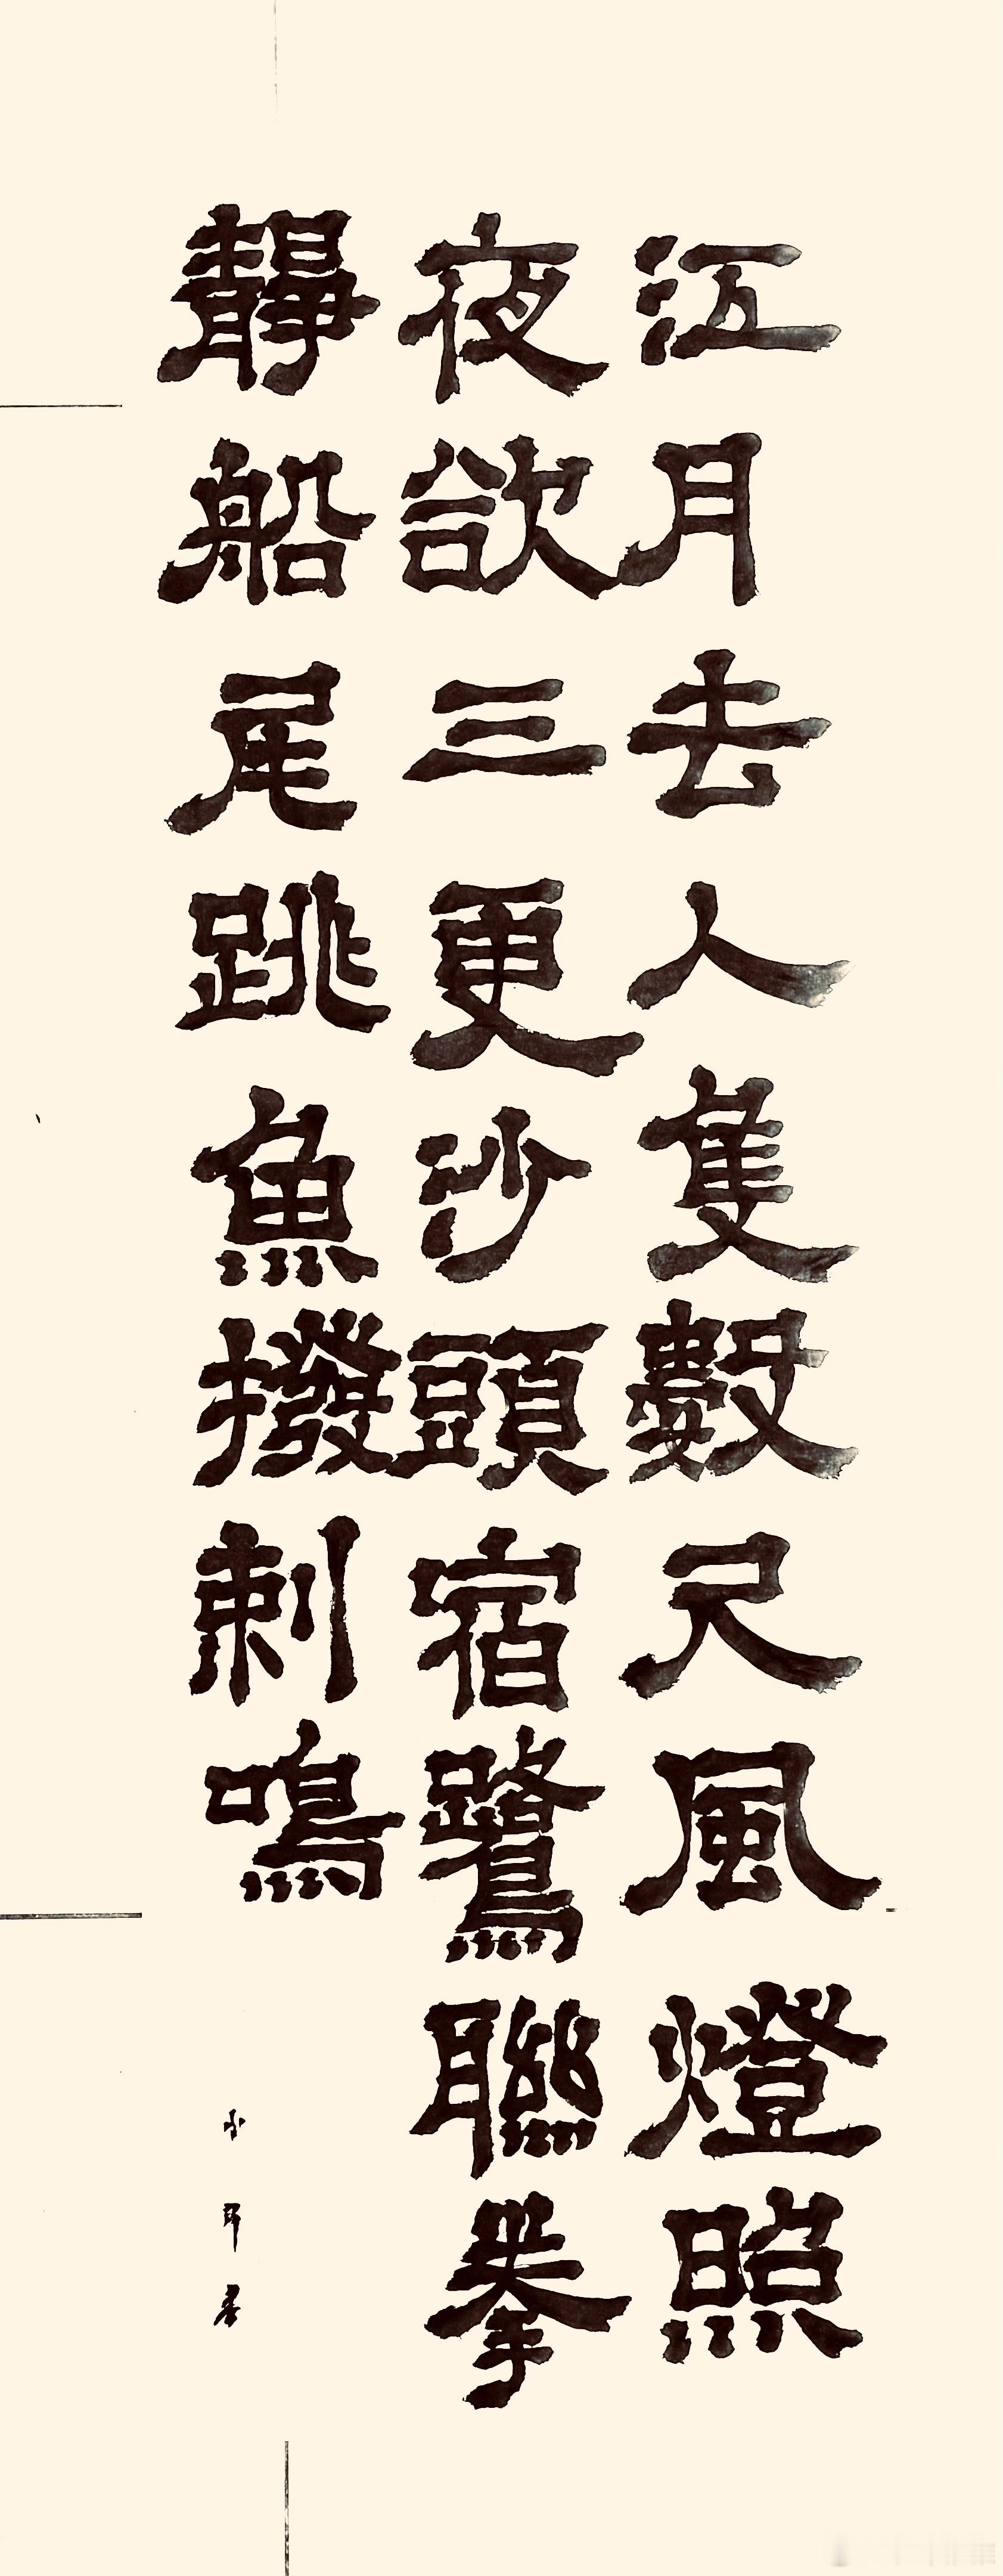 江月去人隻數尺風燈照
夜欲三更沙頭宿鷺聯拳
靜船尾跳魚撥剌鳴
小耳書